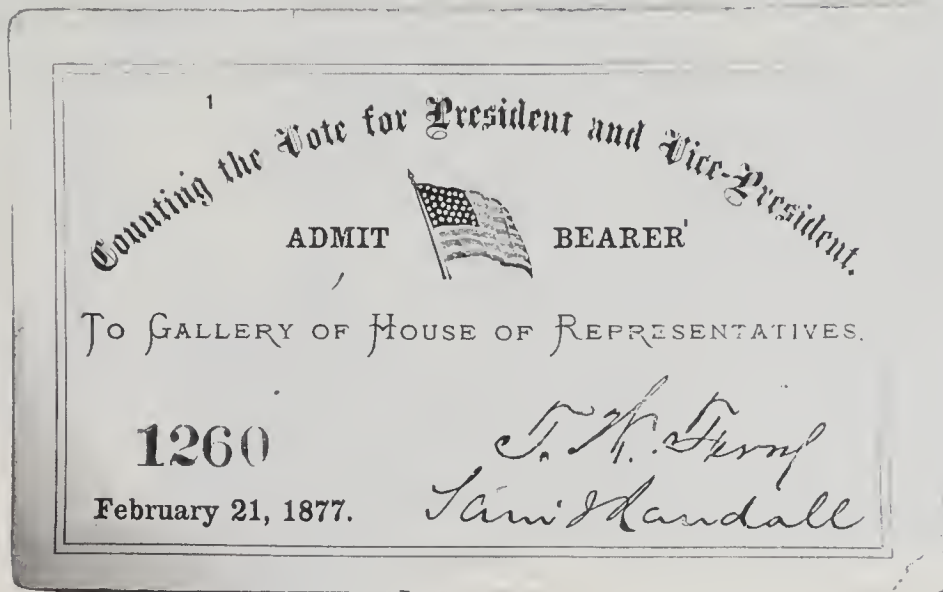 Counting the Vote for President and Vice-President.
ADMIT BEARER
TO GALLERY OF HOUSE OF REPRESENTATIVES.
1260
February 21, 1877.
T. W. Ferry
Saml J Randall